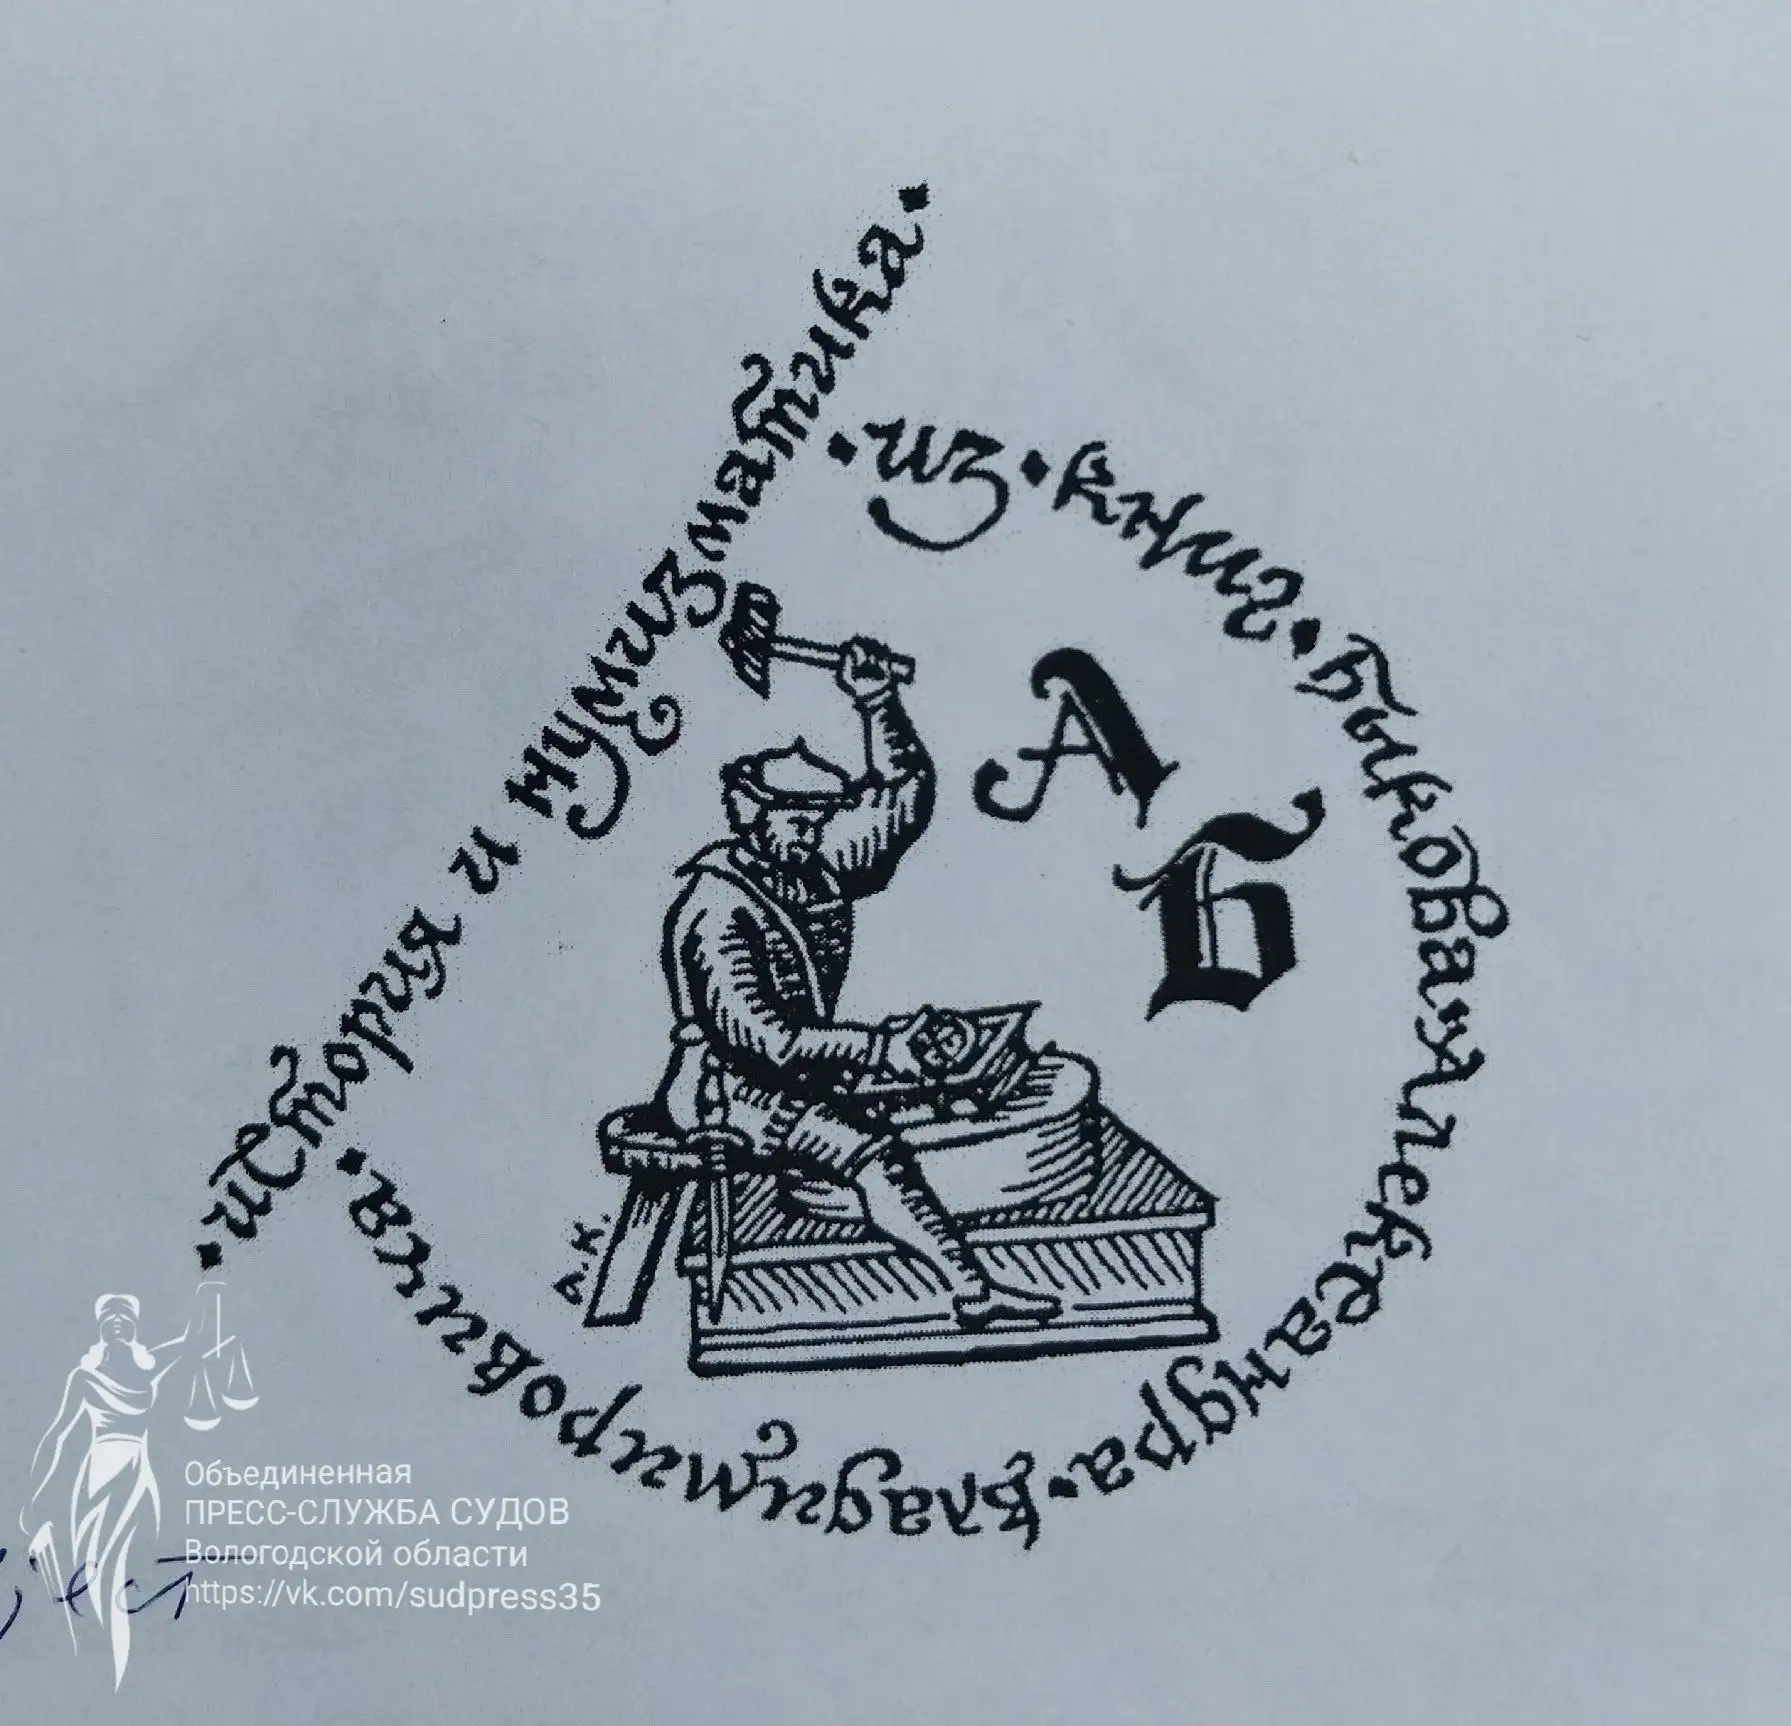 ·история и нумизматика·
·из·книг·Быкова·Александра·Владимировича·
А
Б
А.К.
Объединенная
ПРЕСС-СЛУЖБА СУДОВ
Вологодской области
https://vk.com/sudpress35